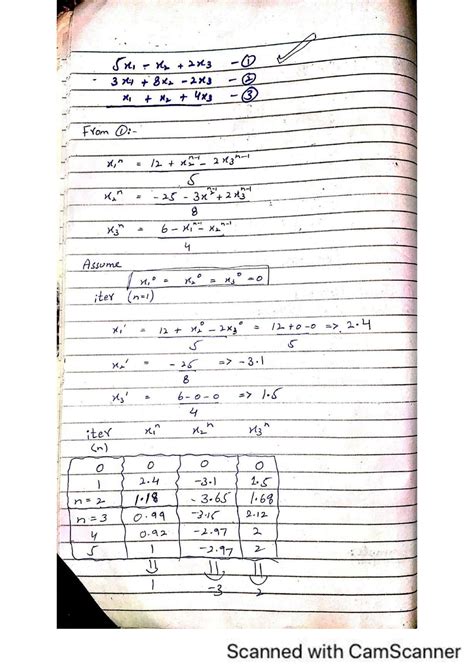 5x₁ - x₂ + 2x₃ - ①
3x₁ + 8x₂ - 2x₃ - ②
x₁ + x₂ + 4x₃ - ③
From ①:-
x₁ⁿ = 12 + x₂ⁿ⁻¹ - 2x₃ⁿ⁻¹
5
x₂ⁿ = -25 - 3xⁿ⁻¹ + 2x₃ⁿ⁻¹
8
x₃ⁿ = 6 - x₁ⁿ⁻¹ - x₂ⁿ⁻¹
4
Assume
x₁⁰ = x₂⁰ = x₃⁰ = 0
iter (n=1)
x₁' = 12 + x₂⁰ - 2x₃⁰ = 12+0-0 => 2.4
5 5
x₂' = -25 => -3.1
8
x₃' = 6-0-0 => 1.5
4
iter x₁ⁿ x₂ⁿ x₃ⁿ
(n)
0 0 0 0
1 2.4 -3.1 1.5
n=2 1.18 -3.65 1.68
n=3 0.99 -3.15 2.12
4 0.92 -2.97 2
5 1 -2.97 2
1 -3 2
Scanned with CamScanner